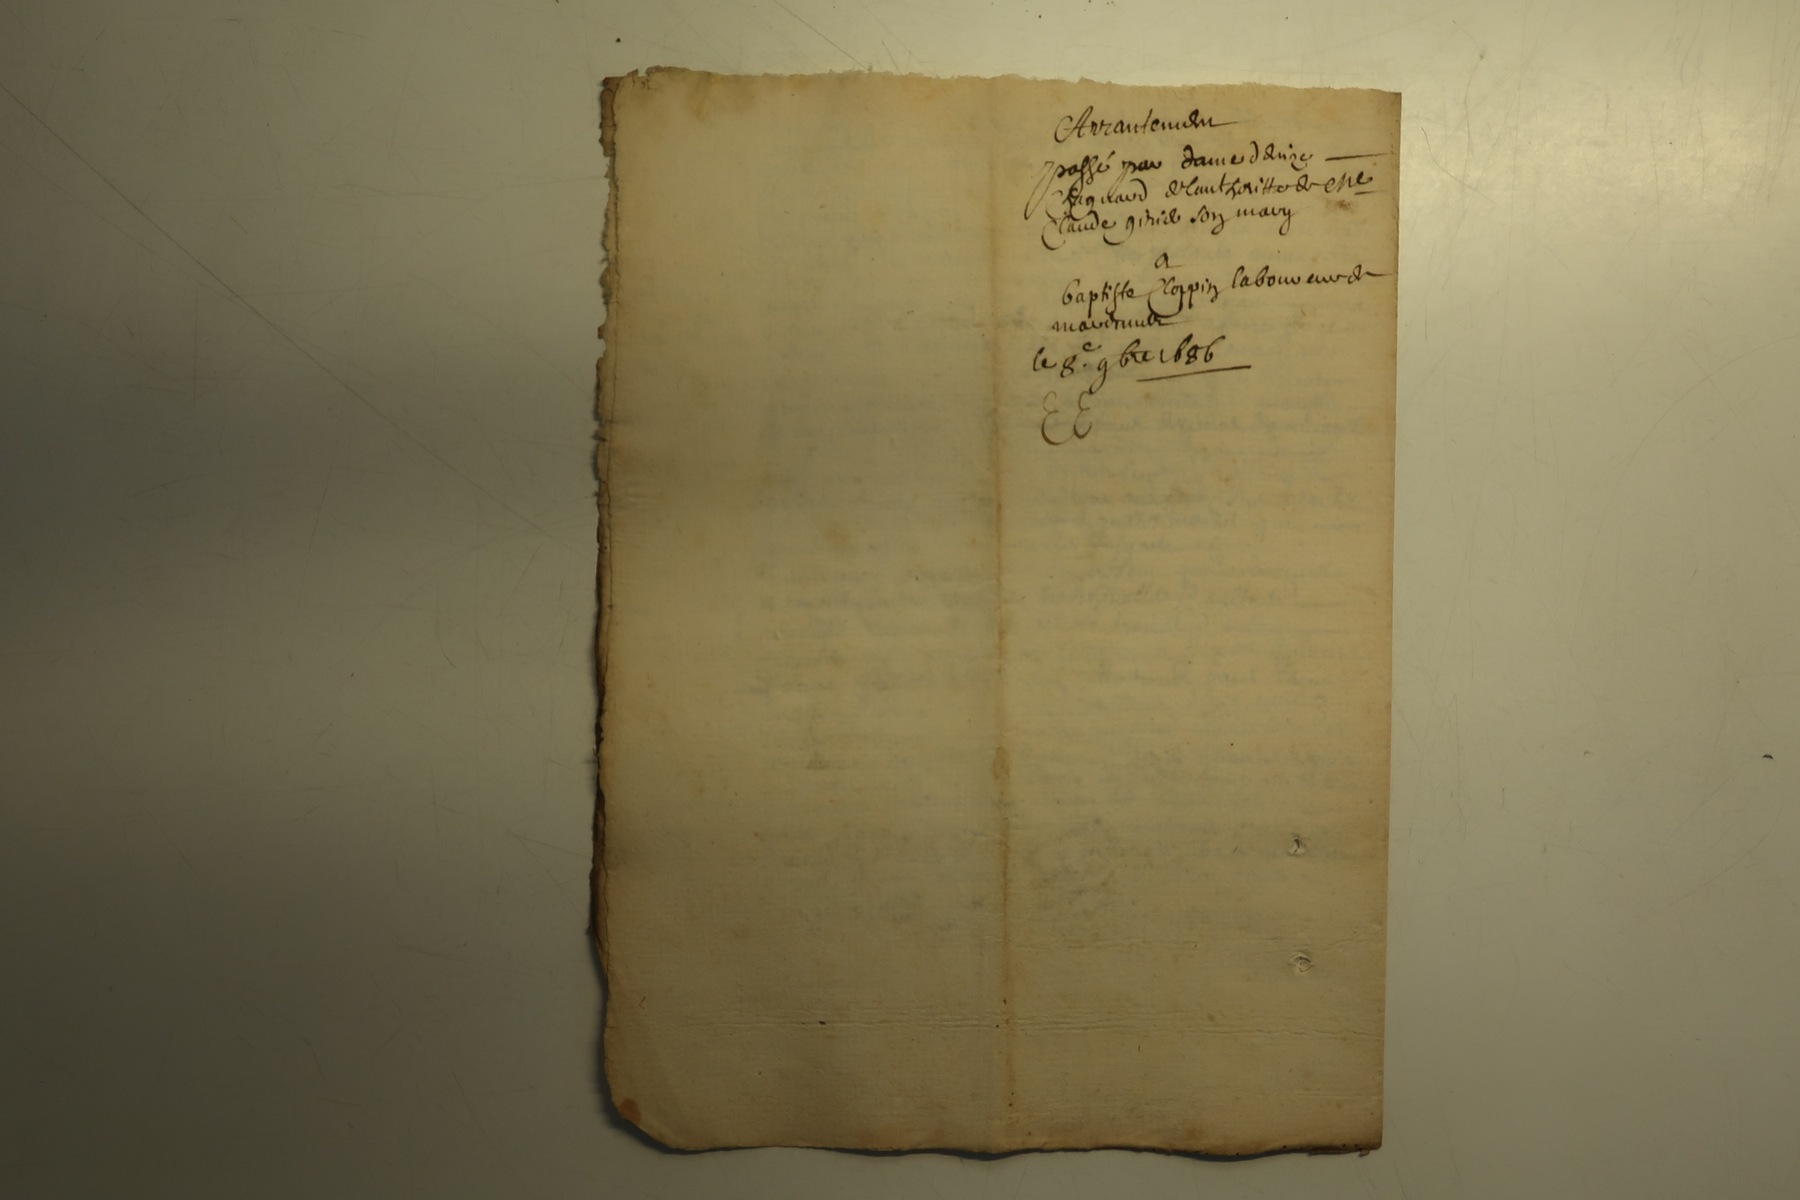 Arrantement
passé par dame denize
Chagnard de lauthoritte de Me
Claude ginid son mary
a
baptiste Choppin laboureur de
le 8.e 9bre 1686
EE